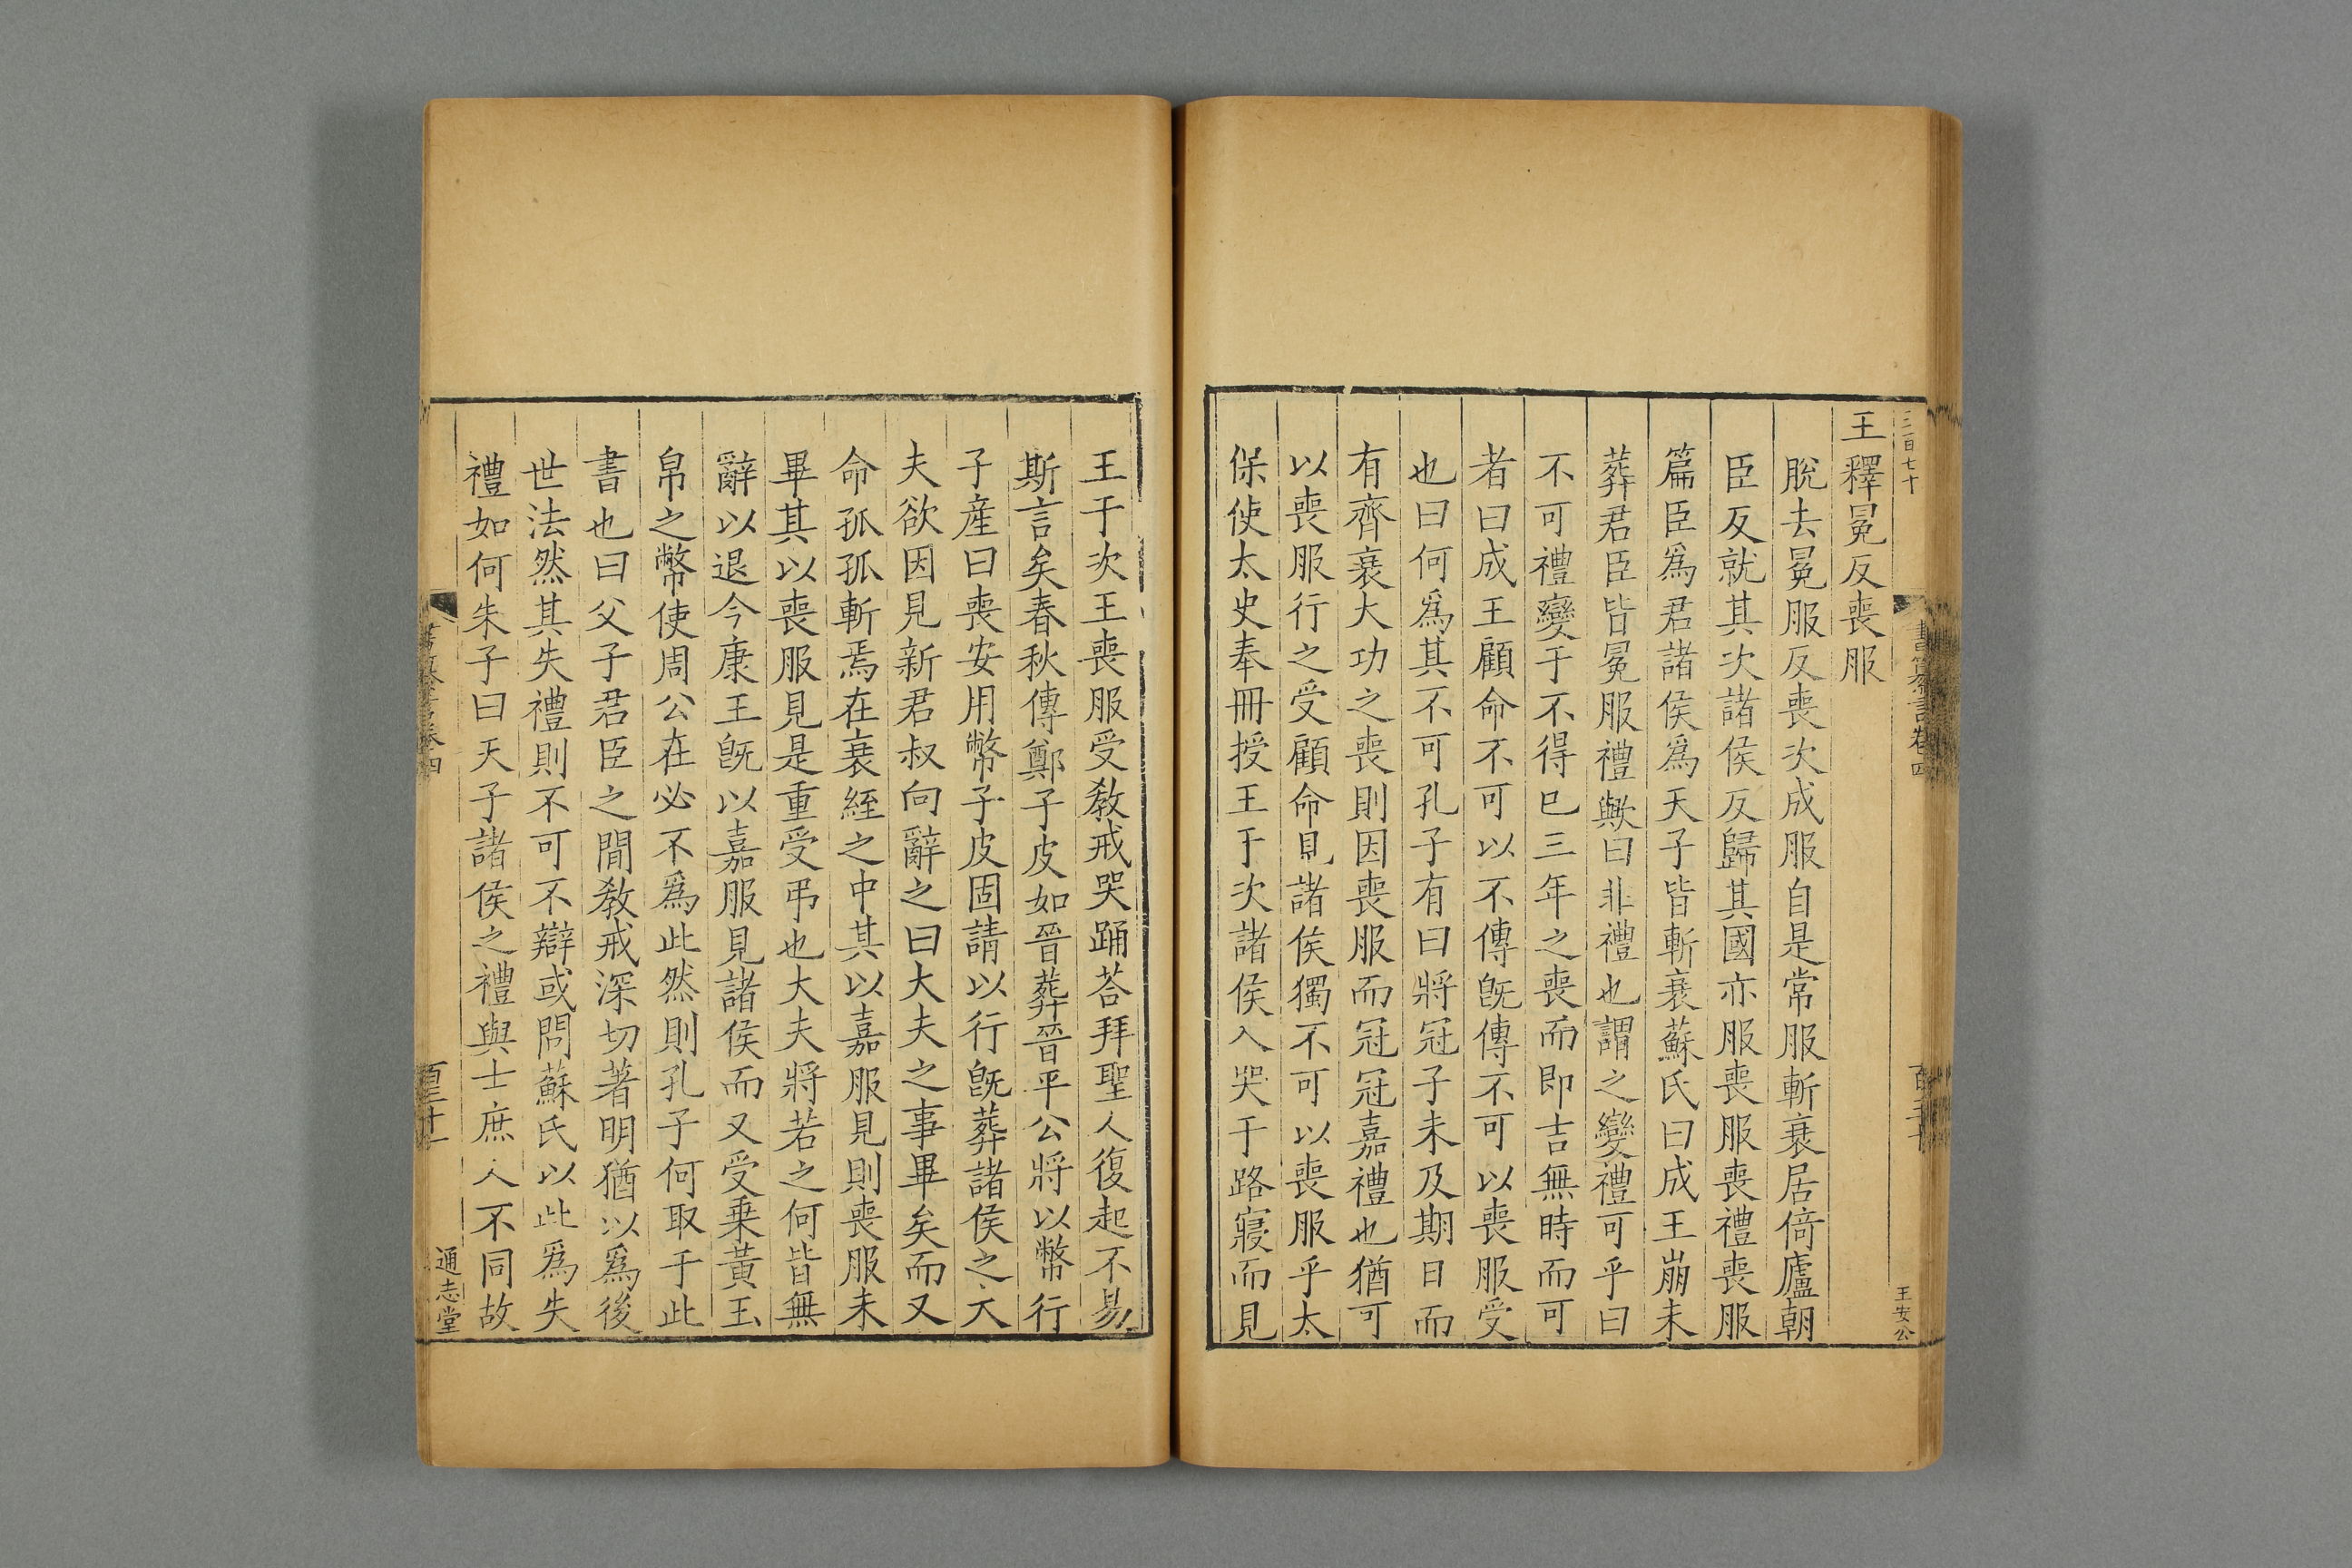 三百七十
王安公
王釋冕反喪服
脫去冕服反喪次成服自是常服斬衰居倚廬朝
臣反就其次諸侯反歸其國亦服喪服喪禮喪服
篇臣爲君諸侯爲天子皆斬衰蘇氏曰成王崩未
葬君臣皆冕服禮歟曰非禮也謂之變禮可乎曰
不可禮變于不得已三年之喪而即吉無時而可
者曰成王顧命不可以不傳旣傳不可以喪服受
也曰何爲其不可孔子有曰將冠子未及期日而
有齊衰大功之喪則因喪服而冠冠嘉禮也猶可
以喪服行之受顧命見諸侯獨不可以喪服乎太
保使太史奉冊授王于次諸侯入哭于路寢而見
王于次王喪服受教戒哭踊荅拜聖人復起不易
斯言矣春秋傳鄭子皮如晉葬晉平公將以幣行
子産曰喪安用幣子皮固請以行旣葬諸侯之大
夫欲因見新君叔向辭之曰大夫之事畢矣而又
命孤孤斬焉在衰絰之中其以嘉服見則喪服未
畢其以喪服見是重受弔也大夫將若之何皆無
辭以退今康王旣以嘉服見諸侯而又受乗黃玉
帛之幣使周公在必不爲此然則孔子何取于此
書也曰父子君臣之間教戒深切著明猶以爲後
世法然其失禮則不可不辯或問蘇氏以此爲失
禮如何朱子曰天子諸侯之禮與士庶人不同故
通志堂